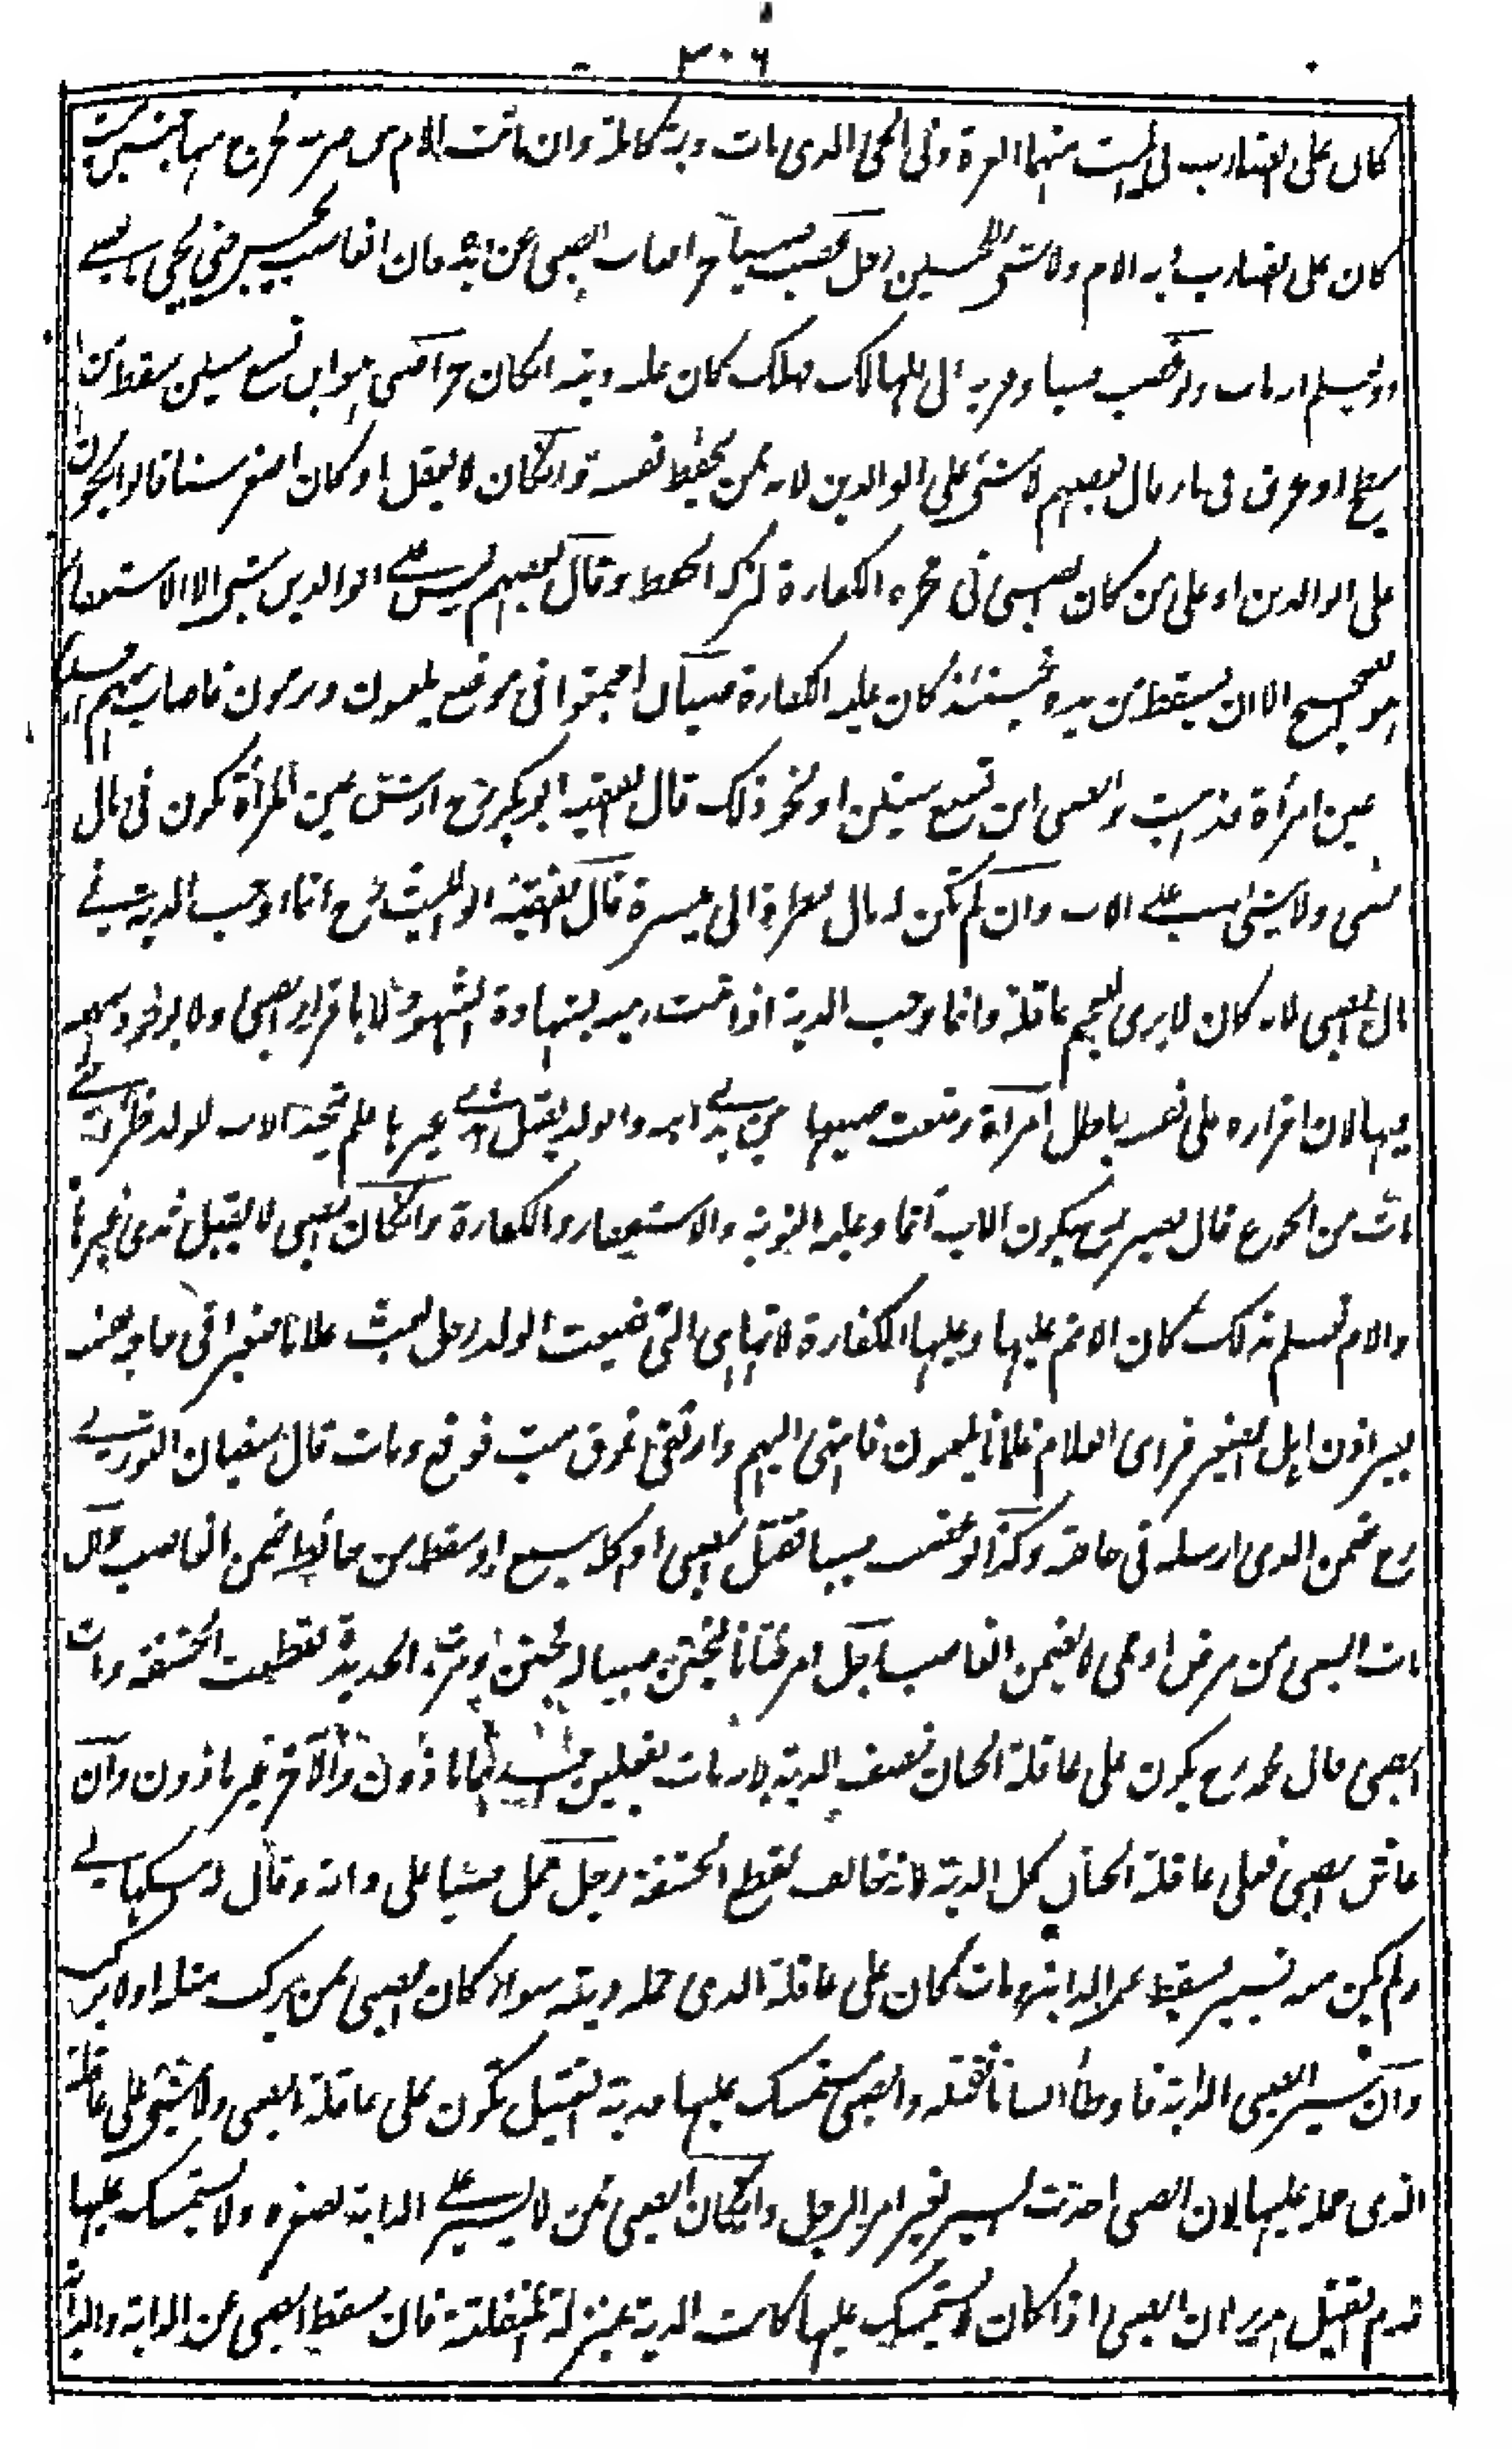 ٣٠٦
كان على الضارب في الميت منهما الغرة وفي الحي الذي مات دية كاملة وان ماتت الام من ضربه فخرج منها جنين ميت
كان على الضارب دية الام ولا شئ في الجنين رجل غصب صبيا حرا فغاب الصبي عن يده فان الغاصب يحبس حتى يجئ بالصبي
او يعلم انه مات ولو غصب صبيا وقربه الى المهالك فهلك كان عليه ديته ان كان حرا صبي هو ابن تسع سنين سقط من
سطح او غرق في ماء قال بعضهم لا شئ على الوالدين لانه ممن يحفظ نفسه وان كان لا يعقل او كان اصغر سنا قالوا يكون
على الوالدين او على من كان الصبي في حجره الكفارة لترك الحفظ وقال بعضهم ليس على الوالدين شئ الا الاستغفار
هو الصحيح الا ان يسقط من يده فحينئذ كان عليه الكفارة صبيان اجتمعوا في موضع يلعبون ويرمون فاصاب سهم احدهم
عين امرأة فذهبت والصبي ابن تسع سنين او نحو ذلك قال الفقيه ابو بكر رح ارش عين المرأة تكون في مال
الصبي ولا شئ على الاب وان لم تكن له مال فنظرة الى ميسرة قال الفقيه ابو الليث رح انما اوجب الدية في
مال الصبي لانه كان لا يرى للعجم عاقلة وانما وجب الدية اذا ثبت رميه بشهادة الشهود لا باقرار الصبي ولا بوجود سهمه
فيها لان اقراره على نفسه باطل امرأة وضعت صبيها بين يدي ابيه والولد يقبل ثدي غيرها فلم تتخذ الاب للولد ظئرا حتى
مات من الجوع قال نصير رح يكون الاب آثما وعليه التوبة والاستغفار والكفارة وان كان الصبي لا يقبل ثدي غيرها
والام تعلم ذلك كان الاثم عليها وعليها الكفارة لانها هي التي ضيعت الولد رجل بعث غلاما صغيرا في حاجته
بغير اذن اهل الصغير فراى الغلام غلمانا يلعبون فانتهى اليهم وارتقى فوق بيت فوقع ومات قال سفيان الثوري
رح ضمن الذي ارسله في حاجته وكذا لو غصب صبيا فقتل الصبي او اكله سبع او سقط من حائط ضمن الغاصب وان
مات الصبي من مرض او حمى لا يضمن الغاصب رجل امر ختانا ليختن صبيا له فختن ومرت الحديدة فقطعت الحشفة ومات
الصبي قال محمد رح يكون على عاقلة الختان نصف الدية لانه مات بفعلين احدهما ماذون والآخر غير ماذون وان
عاش الصبي فعلى عاقلة الختان كل الدية لانه خالف بقطع الحشفة رجل حمل صبيا على دابة وقال له امسكها لي
ولم يكن منه تسيير فسقط عن الدابة ومات كان على عاقلة الذي حمله ديته سواء كان الصبي ممن يركب مثله او لا يركب
وان سير الصبي الدابة فاوطأ انسانا فقتله والصبي يستمسك عليها فدية القتيل تكون على عاقلة الصبي ولا شئ على عاقلة
الذي حمله عليها لان الصبي احدث السير بغير امر الرجل وان كان الصبي ممن لا يسير على الدابة لصغره ولا يستمسك عليها
فدم القتيل هدر لان الصبي اذا كان لا يستمسك عليها كانت الدية بمنزلة المنفلتة فان سقط الصبي عن الدابة والدابة